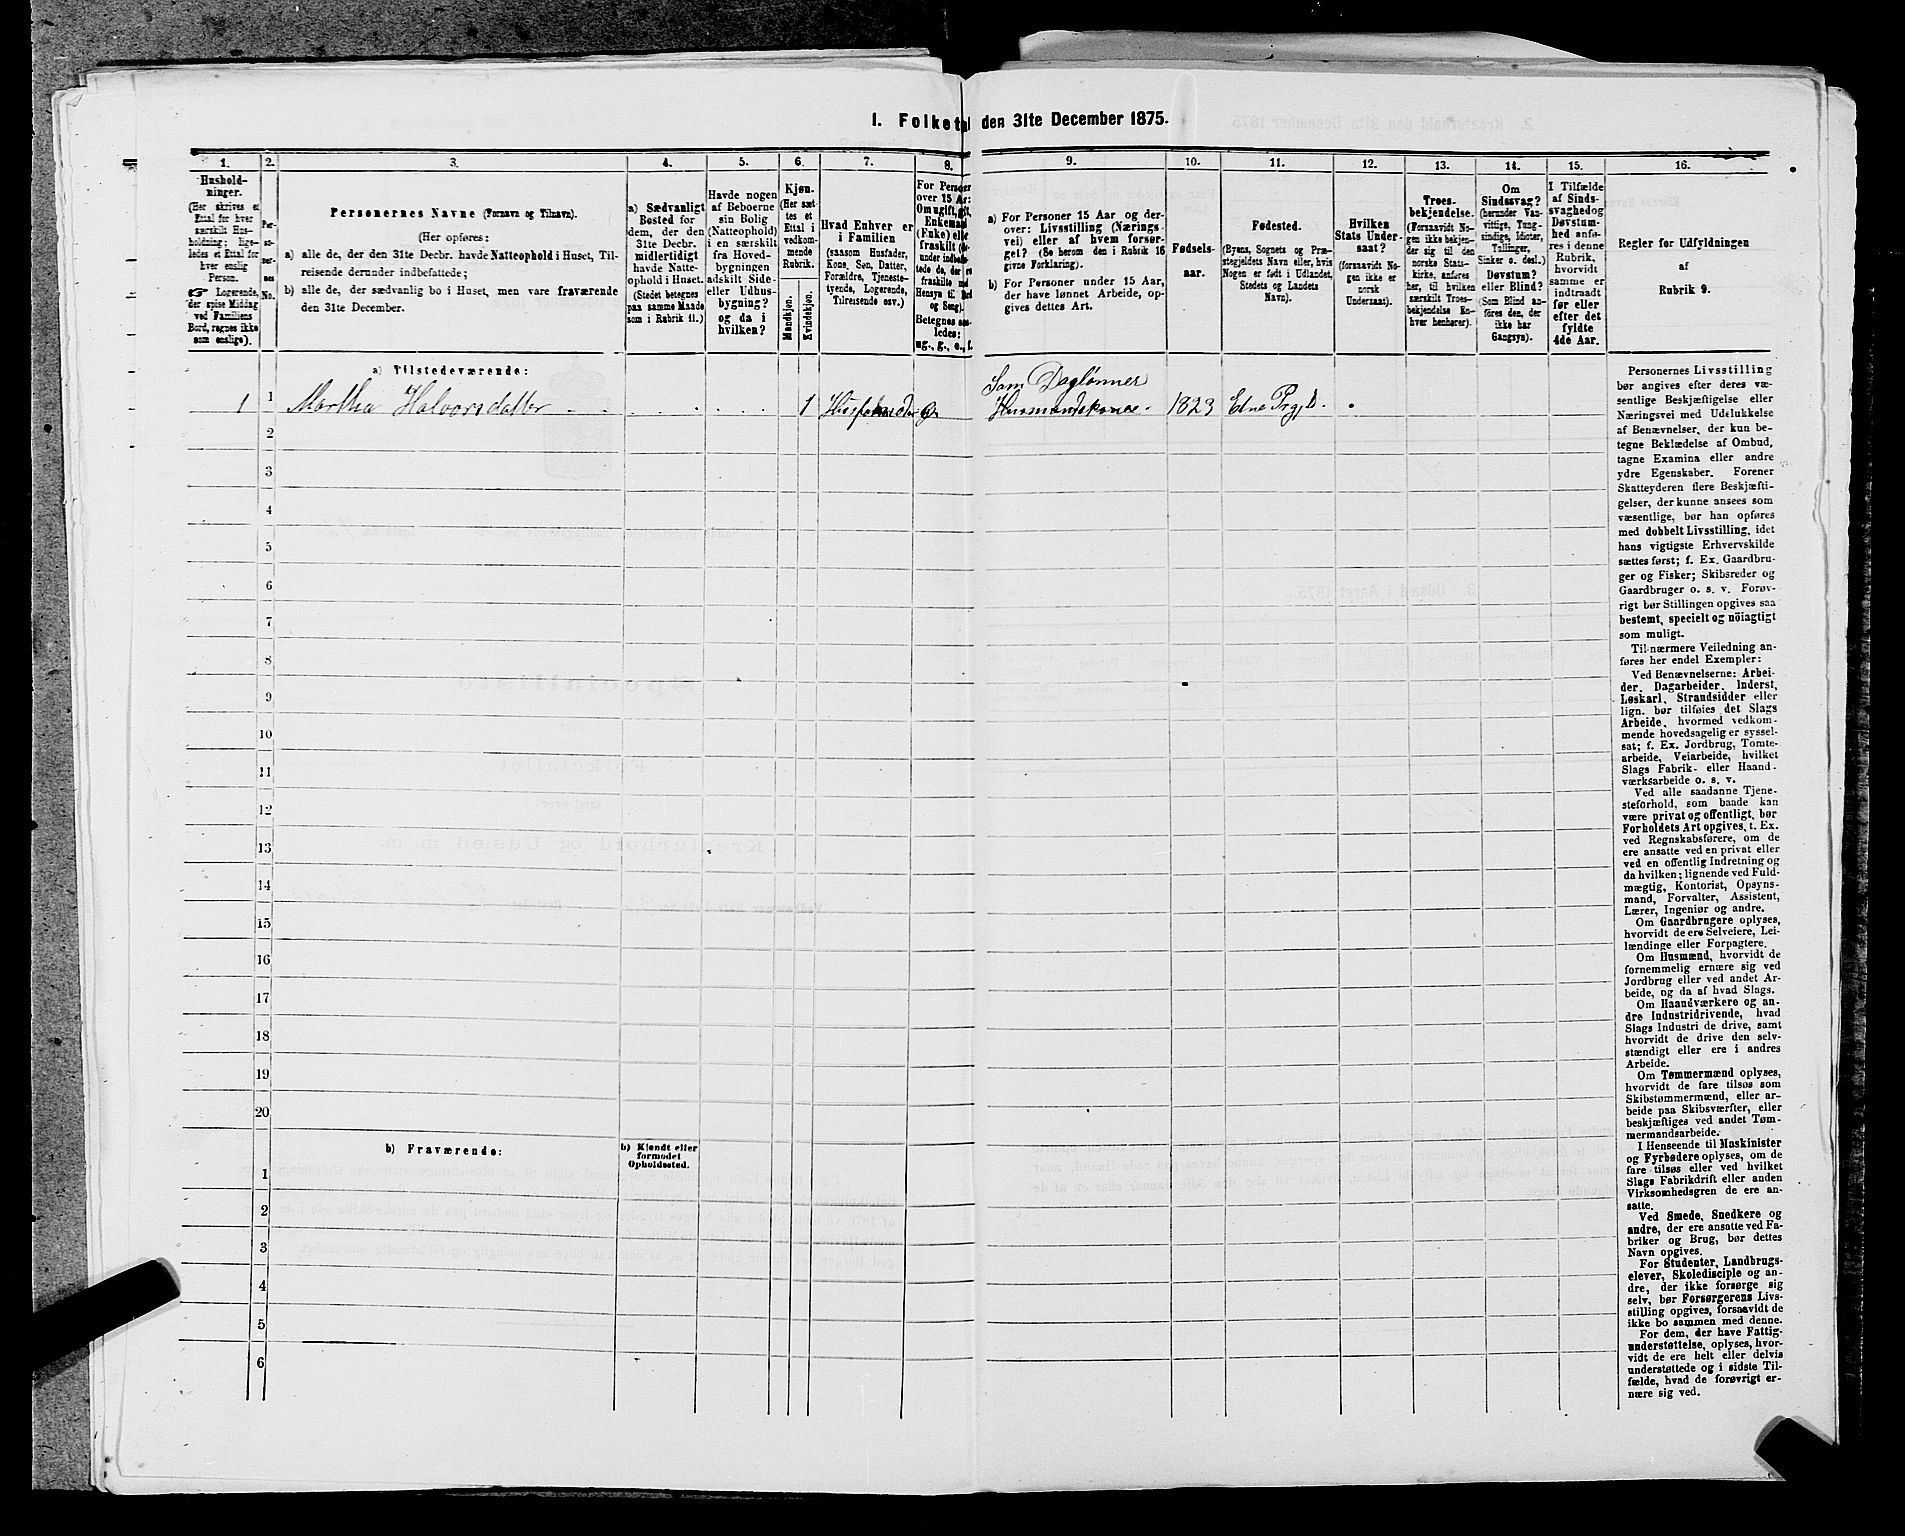 I. Folketal den 31te December 1875.
1.
Hushold-
ninger.
(Her skrives et
Ettal for hver
særskilt Hus-
holdning; lige-
ledes et Ettal for
hver enslig
Person.
Logerende,
der spise Middag
ved Familiens
Bord, regnes ikke
som enslige).
2.
Per-
so-
ner-
nes
No.
3.
Personernes Navne (Fornavn og Tilnavn).
(Her opføres:
a) alle de, der den 31te Decbr. havde Natteophold i Huset, Til-
reisende derunder indbefattede;
b) alle de, der sædvanlig bo i Huset, men vare fraværende
den 31te December.
4.
a) Sædvanligt
Bosted for
dem, der den
31te Decbr.
midlertidigt
havde Natte-
ophold i Huset.
(Stedet betegnes
paa samme Maade
som i Rubrik 11.)
5.
Havde nogen
af Beboerne
sin Bolig
(Natteophold)
i en særskilt
fra Hoved-
bygningen
adskilt Side-
eller Udhus-
bygning?
og da i
hvilken?
6.
Kjøn.
(Her sæt-
tes et
Ettal i
vedkom-
mende
Rubrik.
Mandkjøn.
Kvindekjøn.
7.
Hvad Enhver er
i Familien
(saasom Husfader,
Kone, Søn, Datter,
Forældre, Tjeneste-
tyende, Logerende,
Tilreisende osv.)
8.
For Personer
over 15 Aar:
Om ugift, gift,
Enkemand
(Enke) eller
fraskilt
under indbe-
tede de, der
fraskilte
Hensyn til Bord
og Seng).
Betegnes saa-
ledes:
ug., g., e., f.
9.
a) For Personer 15 Aar og der-
over: Livsstilling (Nærings-
vei) eller af hvem forsør-
get? (Se herom den i Rubrik 16
givne Forklaring).
b) For Personer under 15 Aar,
der have lønnet Arbeide, op-
gives dettes Art.
10.
Fødsels-
aar.
11.
Fødested.
(Byens, Sognets og Præ-
stegjeldets Navn eller, hvis
Nogen er født i Udlandet,
Stedets og Landets
Navn).
12.
Hvilken
Stats Under-
saat?
(forsaavidt No-
gen ikke er
norsk
Undersaat).
13.
Troes-
bekjendelse.
(Forsaavidt No-
gen ikke bekjen-
der sig til den
norske Stats-
kirke, anføres
her, til hvilken
særskilt Troes-
bekjendelse En-
hver henhører).
14.
Om
Sindssvag?
(herunder Van-
vittige, Tung-
sindige, Idioter,
Tullinger,
Sinker o. desl.).
Døvstum?
eller Blind?
(Som Blind an-
føres den, der
ikke har
Gangsyn).
15.
I Tilfælde
af Sinds-
svaghed og
Døvstum-
hed anfø-
res i denne
Rubrik,
hvorvidt
samme er
indtraadt
før eller
efter det
fyldte
4de Aar.
16.
Regler for Udfyldningen
af
Rubrik 9.
a) Tilstedeværende:
Som Daglønner
1 1 Martha Halvorsdatter 1 g Husmandskone. 1823 Etne Prgjld.
2
3
4
5
6
7
8
9
10
11
12
13
14
15
16
17
18
19
20
b) Fraværende:
b) Kjendt eller
formodet
Opholdssted.
1
2
3
4
5
6
Personernes Livsstilling
bør angives efter deres væ-
sentlige Beskjæftigelse eller
Næringsvei med Udelukkelse
af Benævnelser, der kun be-
tegne Beklædelse af Ombud,
tagne Examina eller andre
ydre Egenskaber. Forener
Skatteyderen flere Beskjæfti-
gelser, der kunne ansees som
væsentlige, bør han opføres
med dobbelt Livsstilling, idet
hans vigtigste Erhvervskilde
sættes først; f. Ex. Gaardbru-
ger og Fisker; Skibsreder og
Gaardbruger o. s. v. Forøv-
rigt bør Stillingen opgives saa
bestemt, specielt og nöiagtigt
som muligt.
Til nærmere Veiledning an-
føres her endel Exempler:
Ved Benævnelserne: Arbei-
der, Dagarbeider, Inderst,
Løskarl, Strandsidder eller
lign. bør tilføies det Slags
Arbeide, hvormed vedkom-
mende hovedsagelig er syssel-
sat; f. Ex. Jordbrug, Tomte-
arbeide, Veiarbeide, hvilket
Slags Fabrik- eller Haand-
værksarbeide o. s. v.
Ved alle saadanne Tjene-
steforhold, som baade kan
være privat og offentligt, bør
Forholdets Art opgives, t. Ex.
ved Regnskabsførere, om de
ere ansatte ved en privat eller
ved en offentlig Indretning og
da hvilken; lignende ved Fuld-
mægtig, Kontorist, Opsyns-
mand, Forvalter, Assistent,
Lærer, Ingeniør og andre.
Om Gaardbrugere oplyses,
hvorvidt de ere Selveiere, Lei-
lændinge eller Forpagtere.
Om Husmænd, hvorvidt de
fornemmelig ernære sig ved
Jordbrug eller ved andet Ar-
beide, og da af hvad Slags.
Om Haandværkere og an-
dre Industridrivende, hvad
Slags Industri de drive, samt
hvorvidt de drive den selv-
stændigt eller ere i andres
Arbeide.
Om Tømmermænd oplyses,
hvorvidt de fare tilsøs som
Skibstømmermænd, eller ar-
beide paa Skibsværfter, eller
beskjæftiges ved andet Tøm-
mermandsarbeide.
I Henseende til Maskinister
og Fyrbødere oplyses, om de
fare tilsøs eller ved hvilket
Slags Fabrikdrift eller anden
Virksomhedsgren de ere an-
satte.
Ved Smede, Snedkere og
andre, der ere ansatte ved Fa-
briker og Brug, bør dettes
Navn opgives.
For Studenter, Landbrugs-
elever, Skoledisciple og an-
dre, der ikke forsørge sig
selv, bør Forsørgerens Livs-
stilling opgives, forsaavidt de
ikke bo sammen med denne.
For dem, der have Fattig-
understøttelse, oplyses, hvor-
vidt de ere helt eller delvis
understøttede og i sidste Til-
fælde, hvad de forøvrigt er-
nære sig ved.